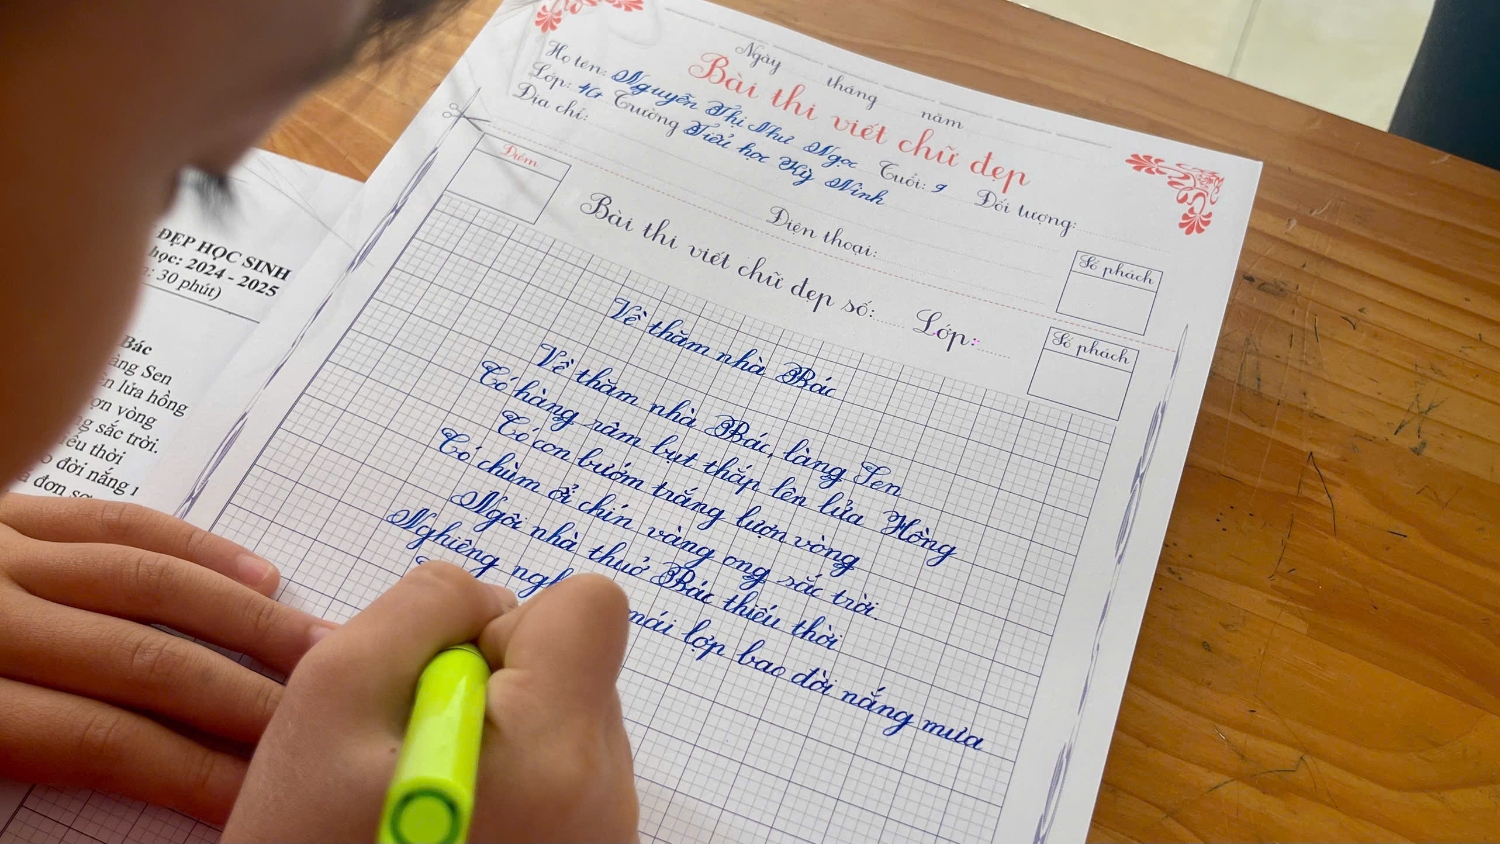 Ngày tháng năm
Bài thi viết chữ đẹp
Họ tên: Nguyễn Thị Như Ngọc Tuổi: 9 Đối tượng:
Lớp: 4G Trường Tiểu học Kỳ Ninh
Địa chỉ:
Điện thoại:
Điểm
Số phách
Bài thi viết chữ đẹp số: Lớp:
Số phách
Về thăm nhà Bác
Về thăm nhà Bác, làng Sen
Có hàng râm bụt thắp lên lửa Hồng
Có con bướm trắng lượn vòng
Có chùm ổi chín vàng ong sắc trời.
Ngôi nhà thuở Bác thiếu thời
Nghiêng mái lợp bao đời nắng mưa
ĐẸP HỌC SINH
học: 2024 - 2025
: 30 phút)
Bác
àng Sen
n lửa hồng
ợn vòng
g sắc trời.
iếu thời
đời nắng
đơn